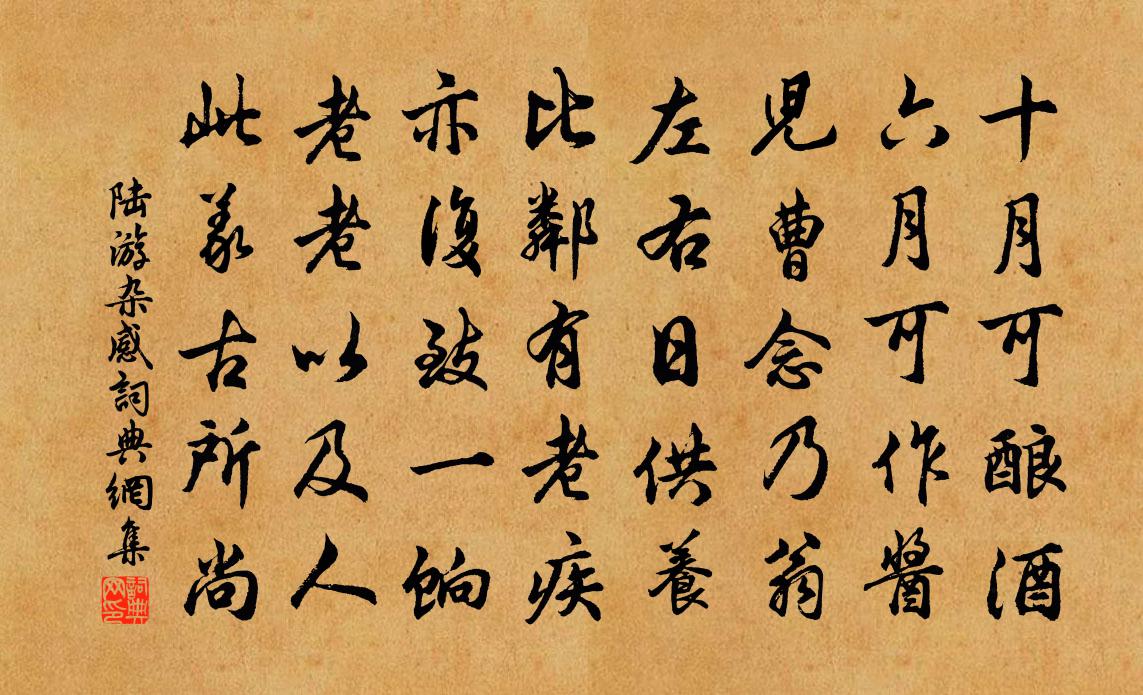 十月可酿酒
六月可作醬
児曹念乃翁
左右日供養
比鄰有老疾
亦復致一餉
老老以及人
此義古所尚
陆游杂感詞典網集
詞典网印